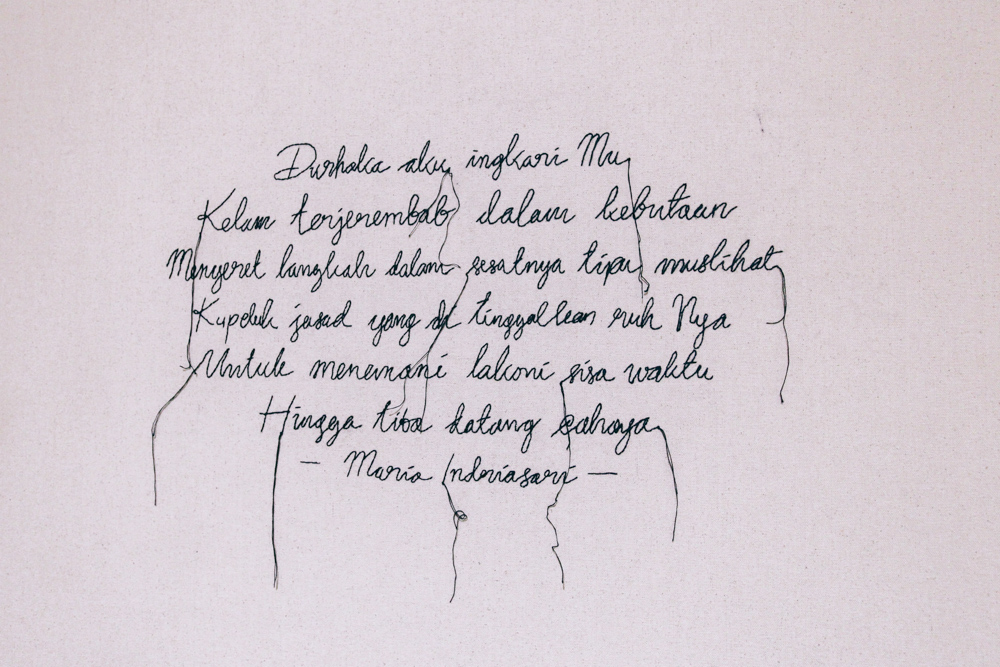 Durhaka aku ingkari Mu
Kelam terjerembab dalam kebutaan
Menyeret langkah dalam sesatnya tipu muslihat
Kupeluk jasad yang di tinggalkan ruh Nya
Untuk menemani lakoni sisa waktu
Hingga tiba datang cahaya
— Maria Indriasari —